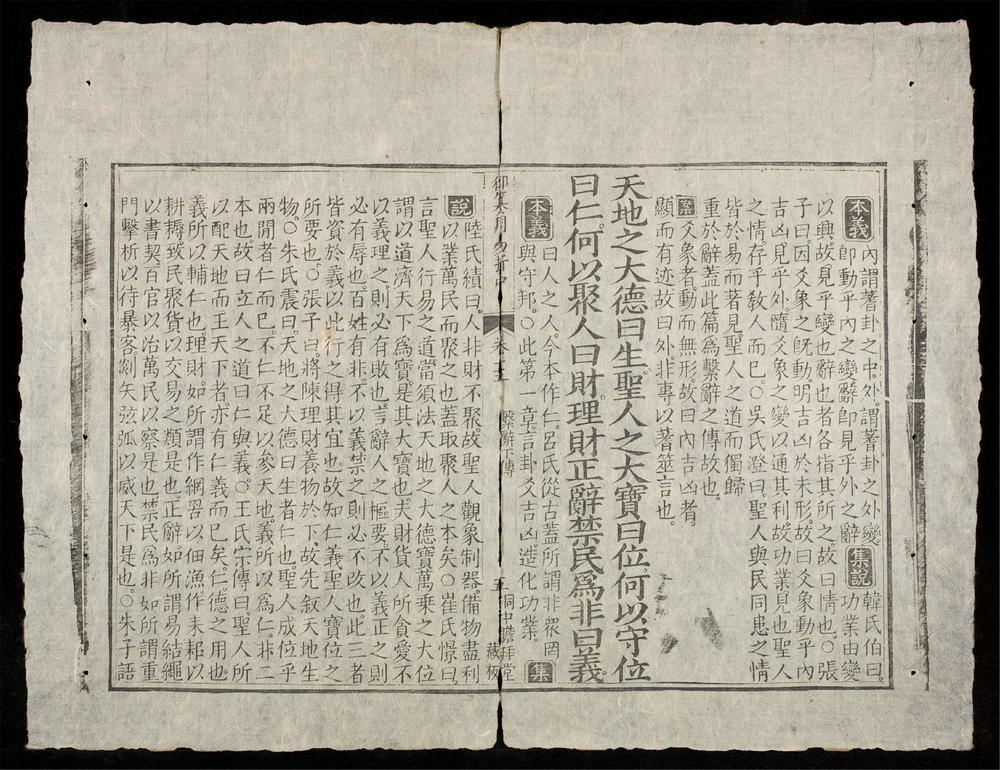 本義 內謂蓍卦之中外謂蓍卦之外變
即動乎內之變辭即見乎外之辭 集說 韓氏伯曰
功業由變
以興故見乎變也辭也者各指其所之故曰情也○張
子曰因爻象之既動明吉凶於未形故曰爻象動乎內
吉凶見乎外隨爻象之變以通其利故功業見也聖人
之情存乎教人而已○吳氏澄曰聖人與民同患之情
皆於易而著見聖人之道而獨歸
重於辭蓋此篇為繫辭之傳故也
案 爻象者動而無形故曰內吉凶者
顯而有迹故曰外非專以蓍筮言也
天地之大德曰生聖人之大寶曰位何以守位
曰仁何以聚人曰財理財正辭禁民為非曰義
本義 曰人之人今本作仁呂氏從古蓋所謂非眾罔
與守邦○此第一章言卦爻吉凶造化功業 集
御纂周易折中 卷十五 繫辭下傳 五 藏板
說 陸氏績曰人非財不聚故聖人觀象制器備物盡利
以業萬民而聚之也蓋取聚人之本矣○崔氏憬曰
言聖人行易之道當須法天地之大德寶萬乘之大位
謂以道濟天下為寶是其大寶也夫財貨人所貪愛不
以義理之則必有敗也言辭人之樞要不以義正之則
必有辱也百姓有非不以義禁之則必不改也此三者
皆資於義以此行之得其宜也故知仁義聖人寶位之
所要也○張子曰將陳理財養物於下故先敘天地生
物○朱氏震曰天地之大德曰生者仁也聖人成位乎
兩間者仁而已不仁不足以參天地義所以為仁非二
本也故曰立人之道曰仁與義○王氏宗傳曰聖人所
以配天地而王天下者亦有仁義而已矣仁德之用也
義所以輔仁也理財如所謂作網罟以佃漁作耒耜以
耕耨致民聚貨以交易之類是也正辭如所謂易結繩
以書契百官以治萬民以察是也禁民為非如所謂重
門擊柝以待暴客剡矢弦弧以威天下是也○朱子語